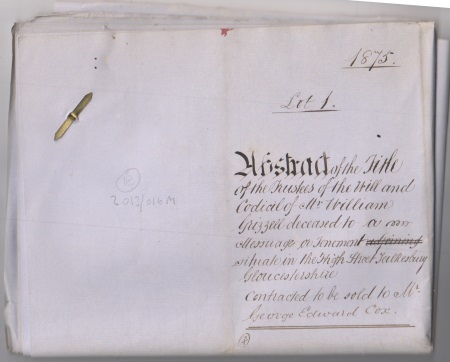 1875.
Lot 1.
Abstract of the Title
of the Trustees of the Will and
Codicil of Mr. William
Grizzell deceased to a
Messuage or Tenement adjoining
situate in the High Street Tewkesbury
Gloucestershire
contracted to be sold to Mr.
George Edward Cox.
2
2013/016M